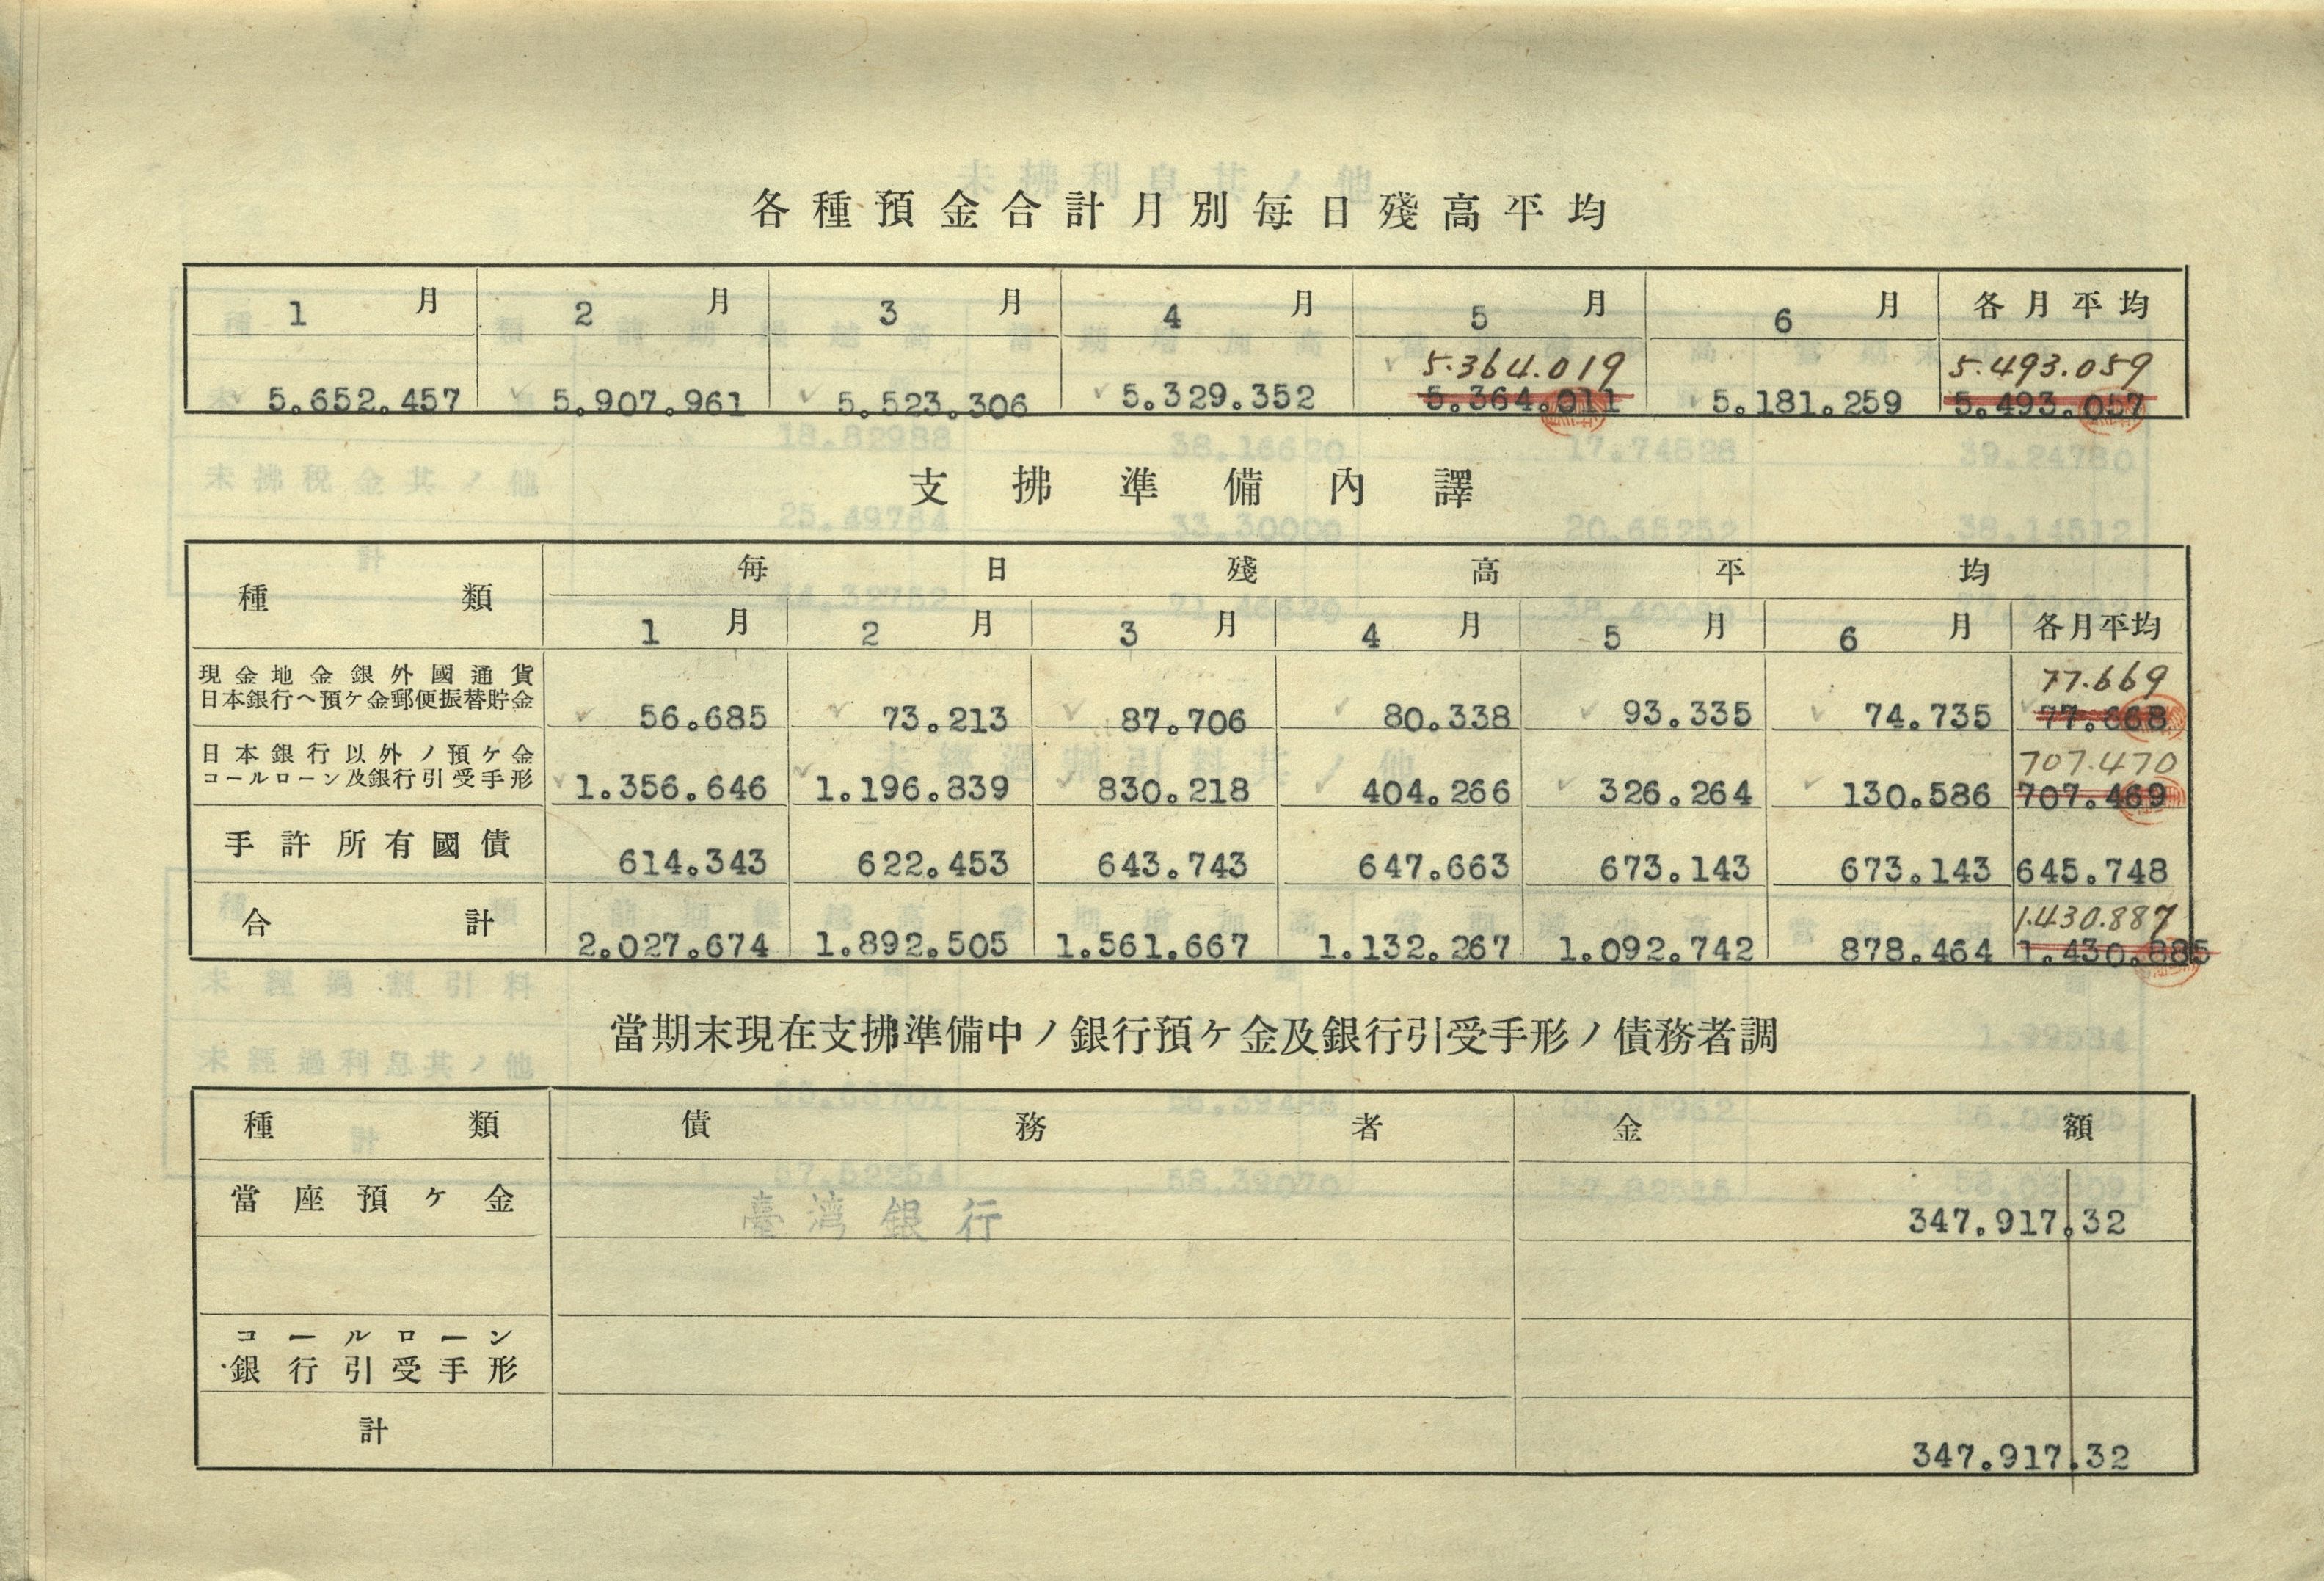 各種預金合計月別毎日殘高平均
1月 2月 3月 4月 5月 6月 各月平均
5.364.019 5.493.059
5.652.457 5.907.961 5.523.306 5.329.352 5.364.011 5.181.259 5.493.057
支拂準備內譯
種類 毎日殘高平均
1月 2月 3月 4月 5月 6月 各月平均
現金地金銀外國通貨 77.669
日本銀行ヘ預ケ金郵便振替貯金 56.685 73.213 87.706 80.338 93.335 74.735 77.668
日本銀行以外ノ預ケ金 707.470
コールローン及銀行引受手形 1.356.646 1.196.839 830.218 404.266 326.264 130.586 707.469
手許所有國債 614.343 622.453 643.743 647.663 673.143 673.143 645.748
1.430.887
合計 2.027.674 1.892.505 1.561.667 1.132.267 1.092.742 878.464 1.430.885
當期末現在支拂準備中ノ銀行預ケ金及銀行引受手形ノ債務者調
種類 債務者 金額
當座預ケ金 臺湾銀行 347.917.32
コールローン
銀行引受手形
計 347.917.32